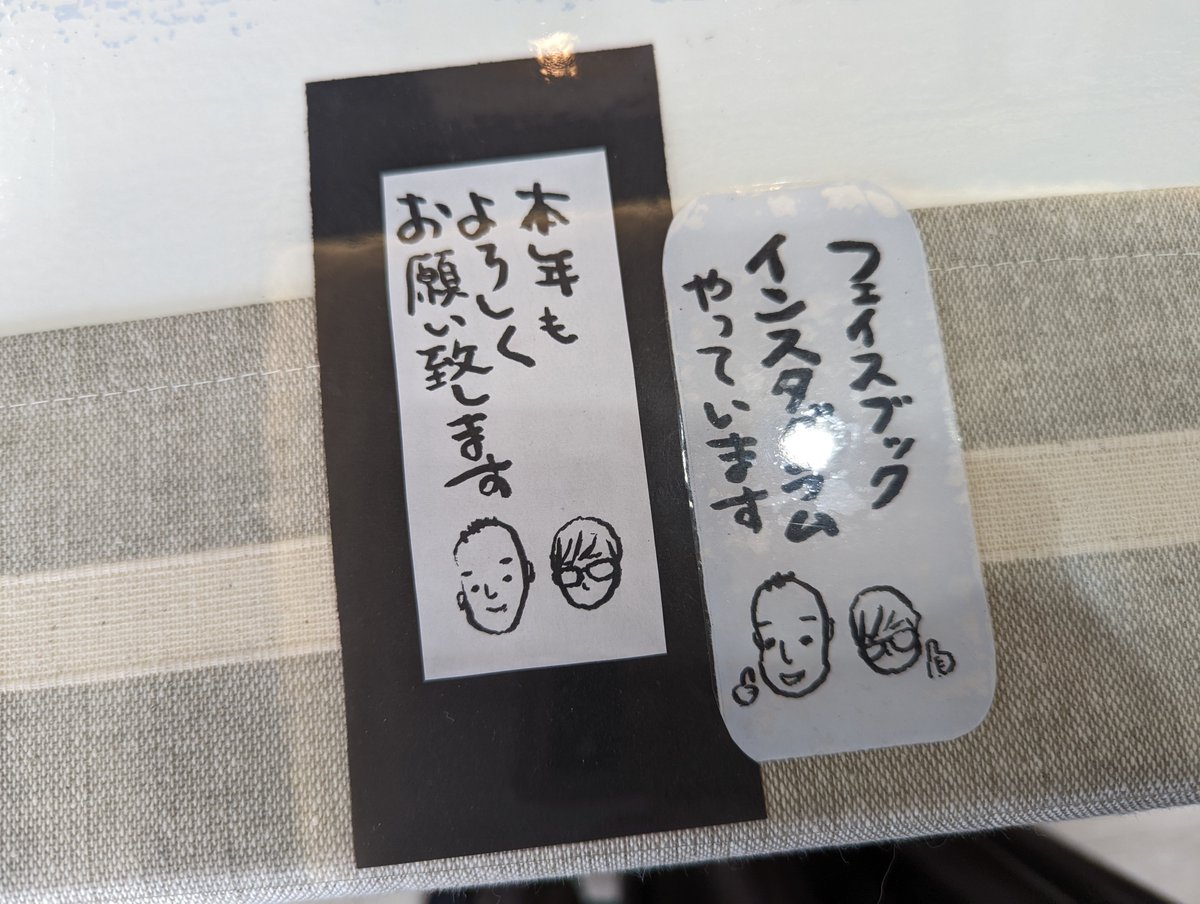 本年も
よろしく
お願い致します
フェイスブック
インスタグラム
やっています